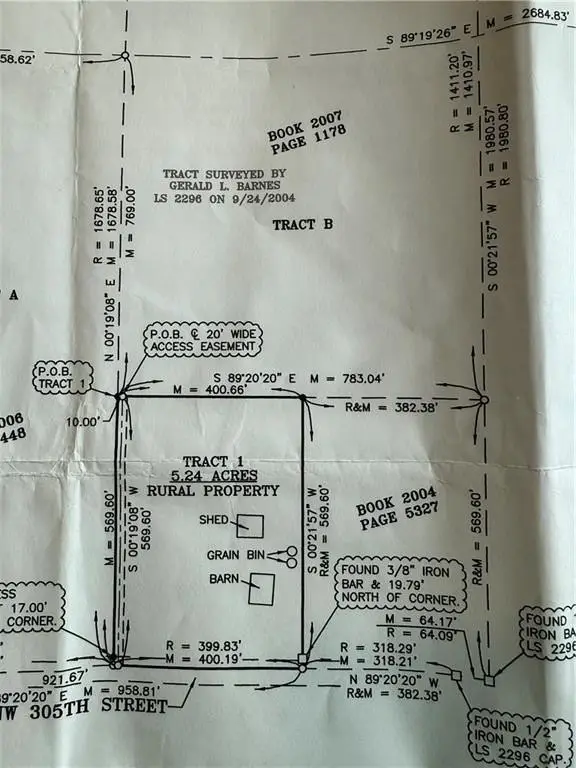 S 89°19'26" E M = 2684.83'
58.62'
R = 1411.20'
M = 1410.97'
BOOK 2007
PAGE 1178
TRACT SURVEYED BY
GERALD L. BARNES
LS 2296 ON 9/24/2004
TRACT B
R = 1678.65'
N 00°19'08" E M = 1678.58'
M = 769.00'
S 00°21'57" W M = 1980.57'
R = 1980.80'
A
P.O.B. ℄ 20' WIDE
ACCESS EASEMENT
P.O.B.
TRACT 1
S 89°20'20" E M = 783.04'
M = 400.66'
R&M = 382.38'
10.00'
006
448
TRACT 1
5.24 ACRES
RURAL PROPERTY
M = 569.60'
S 00°19'08" W
569.60'
S 00°21'57" W
R&M = 569.60'
BOOK 2004
PAGE 5327
R&M = 569.60'
SHED
GRAIN BIN
BARN
FOUND 3/8" IRON
BAR & 19.79'
NORTH OF CORNER.
ESS
17.00'
CORNER.
M = 64.17'
R = 64.09'
FOUND
IRON BA
LS 2296
R = 399.83'
M = 400.19'
R = 318.29'
M = 318.21'
921.67'
89°20'20" E M = 958.81'
N 89°20'20" W
R&M = 382.38'
NW 305TH STREET
FOUND 1/2"
IRON BAR &
LS 2296 CAP.